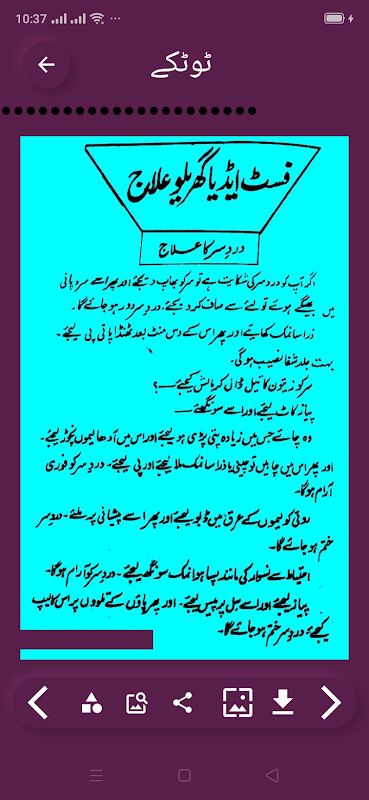 10:37
ٹوٹکے
فسٹ ایڈ یا گھریلو علاج
دردِ سر کا علاج
اگر آپ کو دردِ سر کی شکایت ہے تو سر کو بھاپ دیجئے اور پھر اسے سرد پانی
میں بھیگے ہوئے تولئے سے صاف کر دیجئے۔ دردِ سر دور ہو جائے گا۔
ذرا سا نمک کھائیے اور پھر اس کے دس منٹ بعد ٹھنڈا پانی پی لیجئے۔
بہت جلد شفا نصیب ہوگی۔
سر کو زیتون کا تیل ڈال کر مالش کیجئے —؟
پیاز کاٹ لیجئے اور اسے سونگھئے —
وہ چائے جس میں زیادہ پتی پڑی ہو لیجئے اور اس میں آدھا لیموں نچوڑ لیجئے۔
اور پھر اس میں چاہیں تو چینی یا ذرا سا نمک ملا لیجئے اور پی لیجئے۔ دردِ سر کو فوری
آرام ہوگا۔
روئی کو لیموں کے عرق میں ڈبو لیجئے اور پھر اسے پیشانی پر ملئے۔ دردِ سر
ختم ہو جائے گا۔
احتیاط سے نسوار کی مانند پسا ہوا نمک سونگھ لیجئے۔ دردِ سر کو آرام ہوگا۔
پیاز لیجئے اور اسے سل پر پیس لیجئے۔ اور پھر پاؤں کے تلوؤں پر اس کا لیپ
کیجئے دردِ سر ختم ہو جائے گا۔